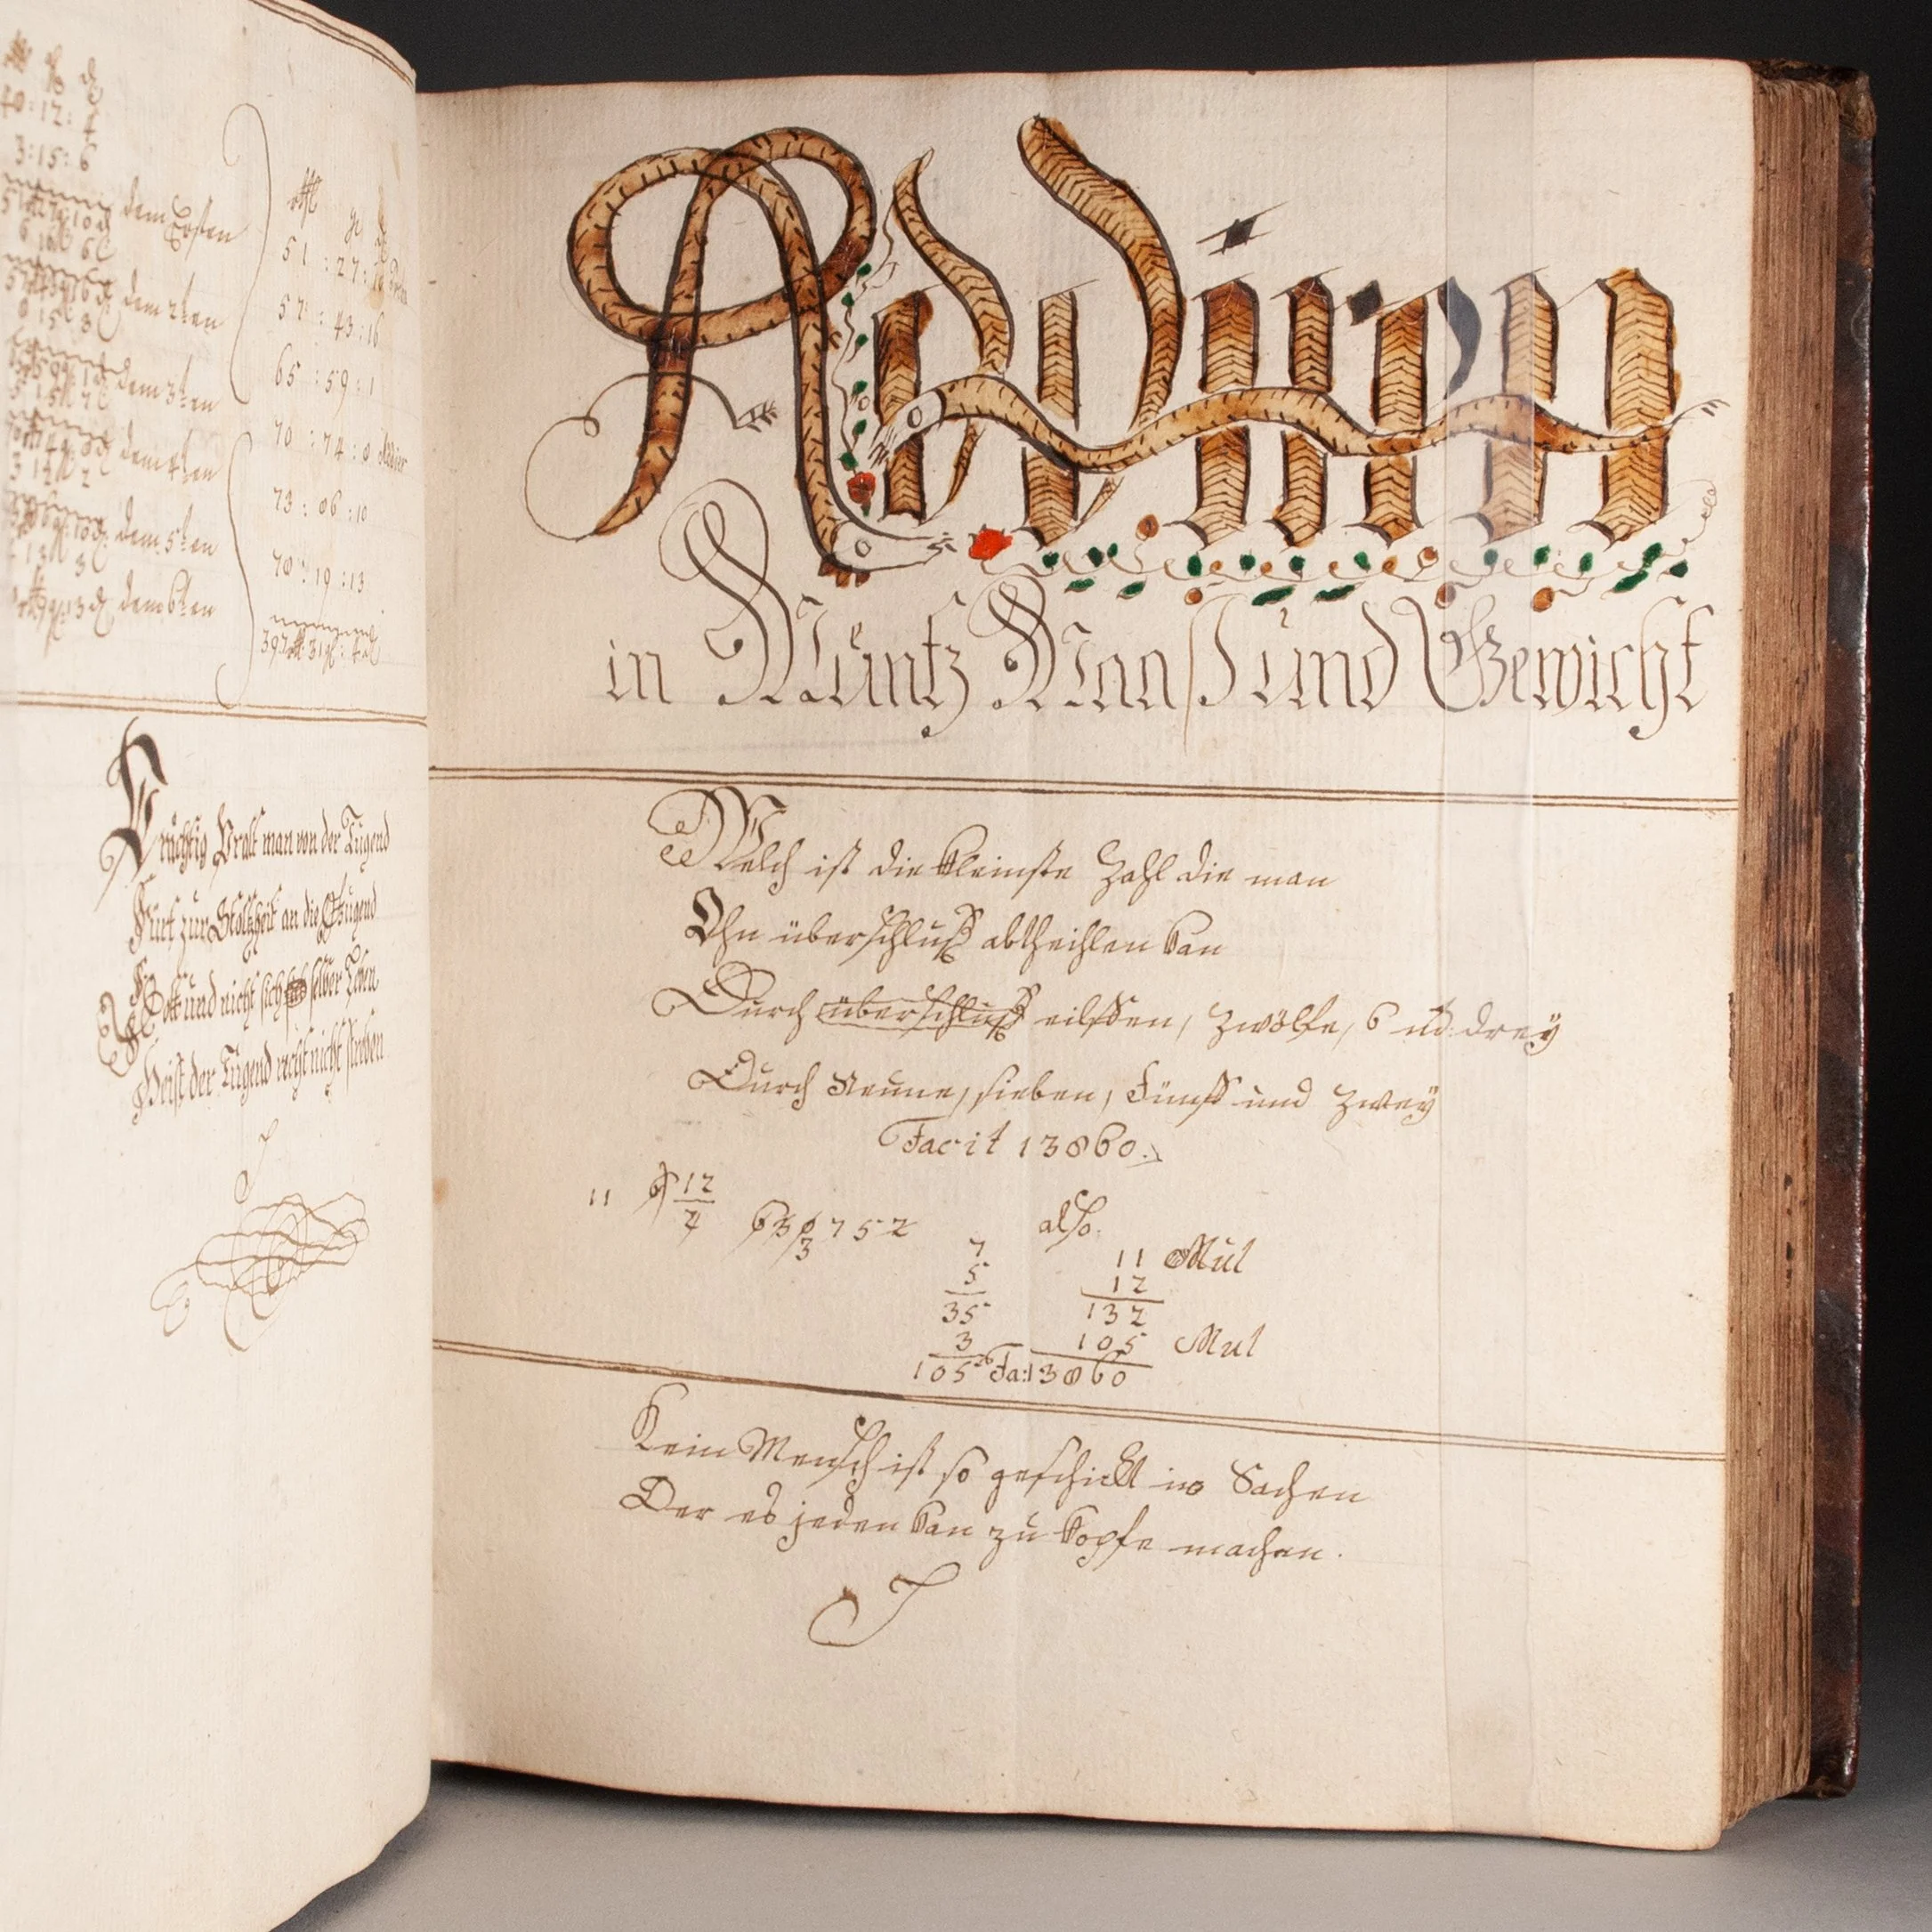 40 : 12 : 4
3 : 15 : 6
dem Ersten
dem 2ten
dem 3ten
dem 4ten
dem 5ten
dem 6ten
51 : 27 : 10
57 : 43 : 16
65 : 59 : 1
70 : 74 : 0 Addier
73 : 06 : 10
70 : 19 : 13
man von der Tugend
zur Stoltzheit an die
Gott und nicht sich selber Leben
Heist der Tugend recht nicht
Addiren
in Müntz Maaß und Gewicht
Welch ist die kleinste Zahl die man
Ohn überschluß abtheihlen kan
Durch überschluß eilffen, zwölfe, 6 ud: dreÿ
Durch Neune, sieben, Fünff und zweÿ
Facit 13860.
11 9 12
2
6 3 9 7 5 2
3
also.
7
5
35
3
105
11 Mul
12
132
105 Mul
Fa: 13860
Kein Mensch ist so geschickt in Sachen
Der es jeden kan zu kopfe machen.